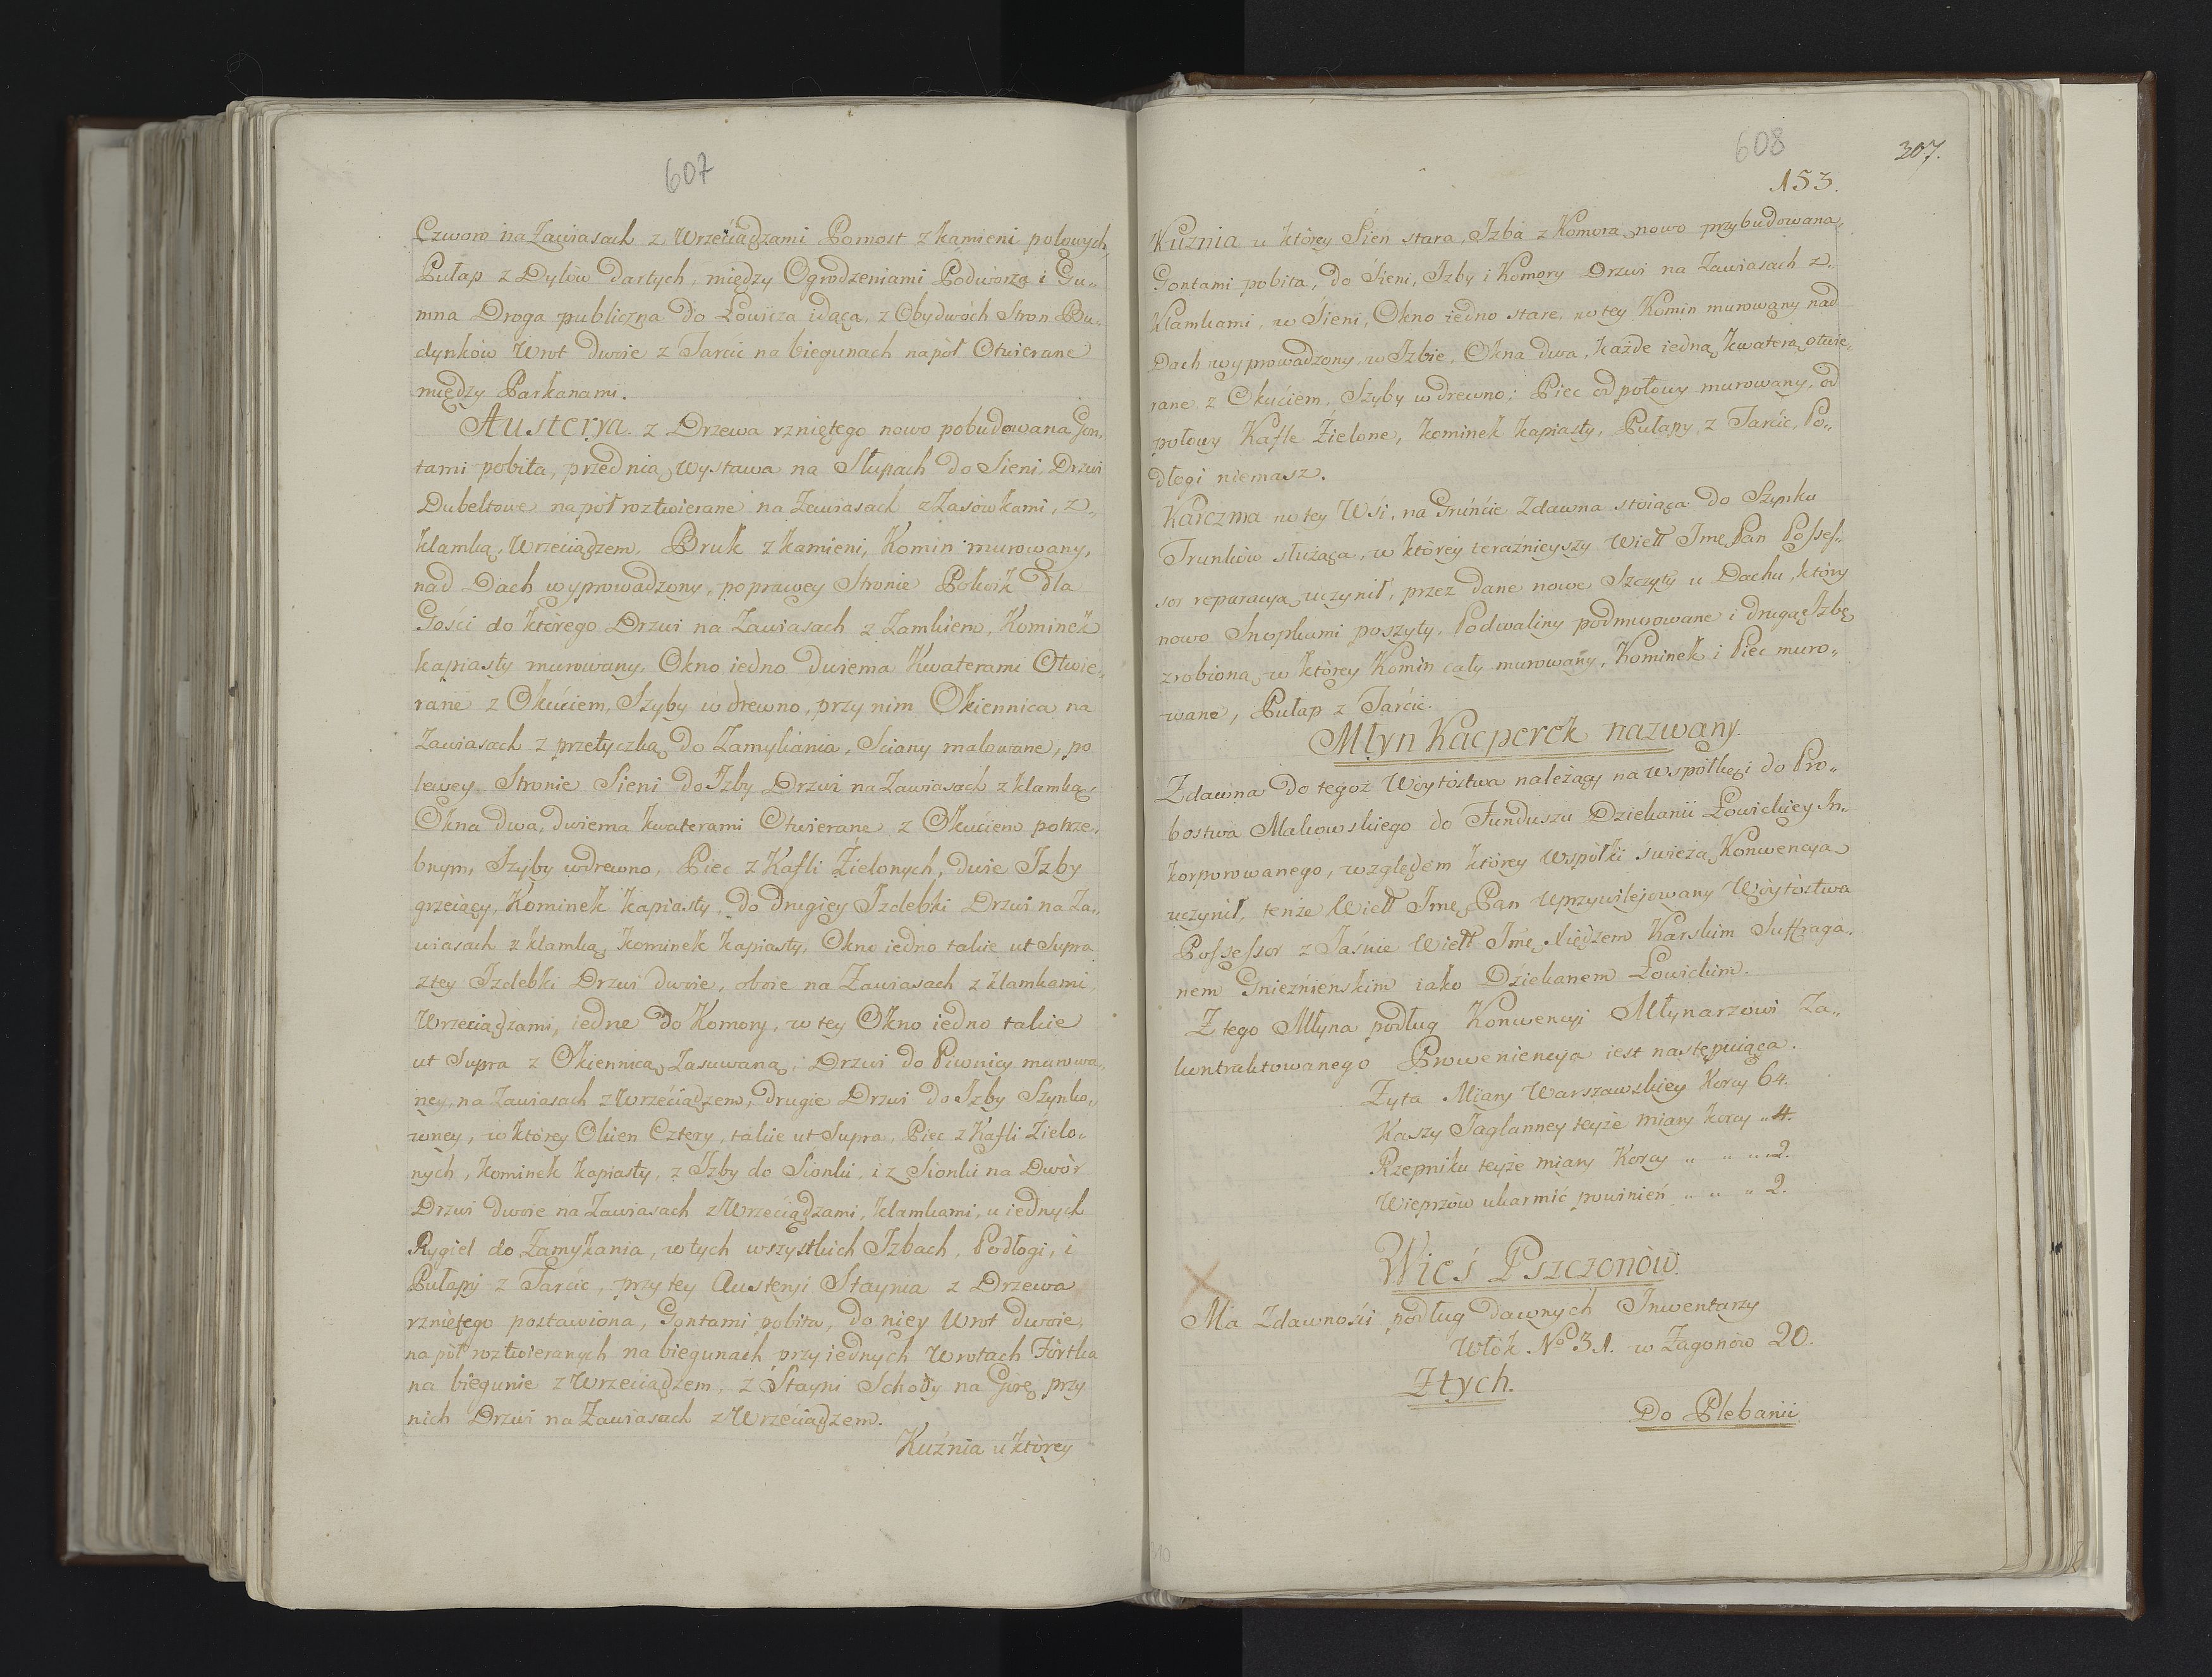 607
Czworo na Zawiasach z Wrzeciądzami Pomost z kamieni polowych,
Pułap z Dylów dartych, między Ogrodzeniami Podwórza i Gu„
mna Droga publiczna do Łowicza idąca, z Obydwóch Stron Bu„
dynków Wrot dwoie z Tarcic na biegunach napół Otwierane
między Parkanami.
Austerya z Drzewa rzniętego nowo pobudowana Gon„
tami pobita, przed nią Wystawa na Słupach do Sieni Drzwi
Dubeltowe napół roztwierane na Zawiasach z Zasówkami, z„
klamką, Wrzeciądzem, Bruk z kamieni, Komin murowany,
nad Dach wyprowadzony, po prawey Stronie Pokoik dla
Gości do którego Drzwi na Zawiasach z Zamkiem, Kominek
kapiasty murowany, Okno iedno dwiema Kwaterami Otwie„
rane z Okuciem, Szyby w drewno, przy nim Okiennica na
Zawiasach z przetyczką do Zamykania, Sciany malowane, po
lewey Stronie Sieni do Izby Drzwi na Zawiasach z klamką,
Okna dwa, dwiema kwaterami Otwierane z Okuciem potrze„
bnym, Szyby w drewno, Piec z Kafli Zielonych, dwie Izby
grzeiący, Kominek kapiasty, do drugiey Izdebki Drzwi na Za„
wiasach z klamką, kominek kapiasty, Okno iedno takie ut Supra
z tey Izdebki Drzwi dwoie, oboie na Zawiasach z klamkami,
Wrzeciądzami, iedne do Komory, w tey Okno iedno takie
ut Supra z Okiennicą Zasuwaną; Drzwi do Piwnicy murowa„
ney, na Zawiasach z Wrzeciądzem, drugie Drzwi do Izby Szynko„
wney, w którey Okien Cztery, takie ut Supra, Piec z Kafli Zielo„
nych, kominek kapiasty, z Izby do Sionki, i z Sionki na Dwór
Drzwi dwoie na Zawiasach z Wrzeciądzami, klamkami, u iednych
Rygiel do Zamykania, w tych wszystkich Izbach, Podłogi, i
Pułapy z Tarcic, przy tey Austeryi Staynia z Drzewa
rzniętego postawiona, Gontami pobita, do niey Wrot dwoie,
na pół roztwieranych na biegunach przy iednych Wrotach Fórtka
na biegunie z Wrzeciądzem, z Stayni Schody na Górę przy
nich Drzwi na Zawiasach z Wrzeciądzem.
Kuźnia u którey
608
307.
153.
Kuznia u którey Sień stara, Izba z Komorą nowo przybudowana„
Gontami pobita, do Sieni, Izby i Komory Drzwi na Zawiasach z„
Klamkami, w Sieni, Okno iedno stare, w tey Komin murowany nad
Dach wyprowadzony, w Izbie, Okna dwa, każde iedną kwaterą otwie„
rane z Okuciem, Szyby w drewno; Piec od połowy murowany, od
połowy Kafle Zielone, kominek kapiasty, Pułapy z Tarcic, Po„
dłogi niemasz.
Karczma w tey Wsi, na Gruńcie Zdawna stoiąca do Szynku
Trunków służąca, w którey teraźnieyszy Wiell Jmę Pan Possess„
sor reparacyą uczynił, przez dane nowe Szczyty u Dachu, który
nowo Snopkami poszyty, Podwaliny podmurowane i drugą Izbę
zrobioną, w którey Komin cały murowany, Kominek i Piec muro„
wane, Pułap z Tarcic.
Młyn Kacperek nazwany.
Zdawna do tegoż Wóytóstwa należący na współkę i do Pro„
bostwa Makowskiego do Funduszu Dziekanii Łowickiey In„
korporowanego, względem którey Współki świeżą Konwencyą
uczynił, tenże Wiell Jmę Pan Uprzywilejowany Wóytóstwa
Possessor z Jaśnie Wiell Jmę Xiędzem Karskim Suffraga„
nem Gnieźnienskim iako Dziekanem Łowickim.
Z tego Młyna podług Konwencyi Młynarzowi Za„
kontraktowanego Proweniencya iest następuiąca.
Żyta Miary Warszawskiey Korcy 64.
Kaszy Jaglanney teyże miary korcy „ 4.
Rzepniku teyże miary Korcy „ „ „ 2.
Wieprzów ukarmić powinień „ „ „ 2.
Wieś Pszczonów.
Ma Zdawności podług dawnych Inwentarzy
Włók No 31. w Zagonów 20.
Ztych.
Do Plebanii